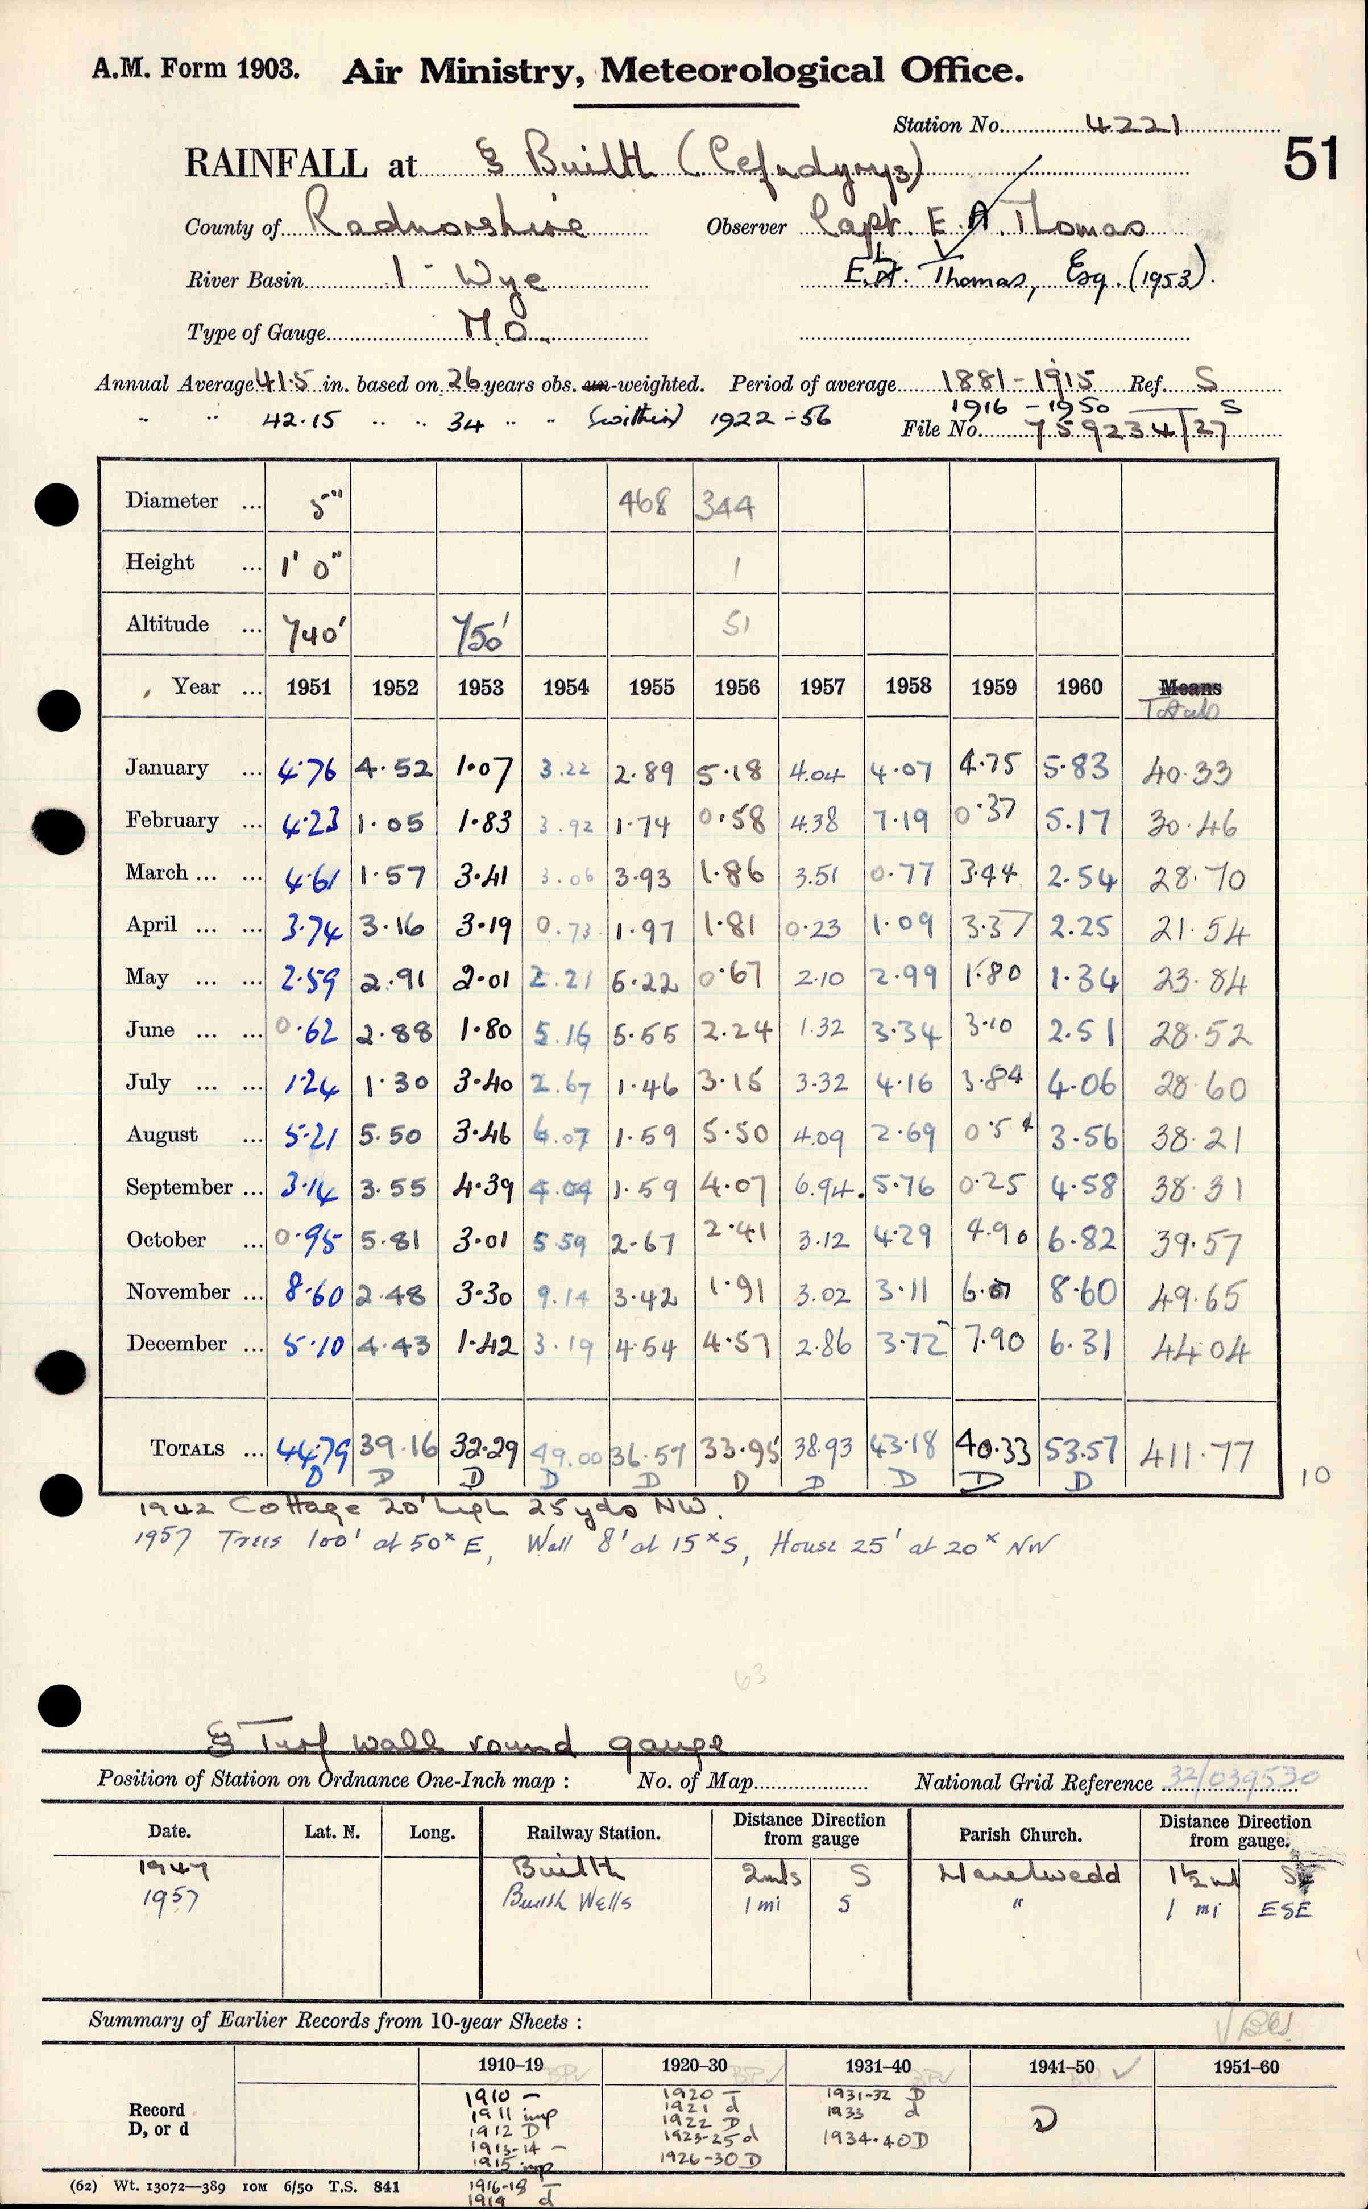 A.M. Form 1903. Air Ministry, Meteorological Office.
Station No. 4221
51
RAINFALL at § Builth (Cefndyrys)
County of Radnorshire Observer Capt. E. A. Thomas
River Basin 1 - Wye E.L. Thomas, Esq. (1953).
Type of Gauge M.O.
Annual Average 41.5 in. based on 26 years obs. un-weighted. Period of average 1881-1915 Ref. S
" " 42.15 " " 34 " " (within) 1922-56 1916 - 1950 S
File No. 759234/27
Diameter ... 5" 468 344
Height ... 1' 0" 1
Altitude ... 740' 750' 51
Year ... 1951 1952 1953 1954 1955 1956 1957 1958 1959 1960 Means
Totals
January ... 4.76 4.52 1.07 3.22 2.89 5.18 4.04 4.07 4.75 5.83 40.33
February ... 4.23 1.05 1.83 3.92 1.74 0.58 4.38 7.19 0.37 5.17 30.46
March ... ... 4.61 1.57 3.41 3.06 3.93 1.86 3.51 0.77 3.44 2.54 28.70
April ... ... 3.74 3.16 3.19 0.73 1.97 1.81 0.23 1.09 3.37 2.25 21.54
May ... ... 2.59 2.91 2.01 2.21 5.22 0.67 2.10 2.99 1.80 1.34 23.84
June ... ... 0.62 2.88 1.80 5.16 5.55 2.24 1.32 3.34 3.10 2.51 28.52
July ... ... 1.24 1.30 3.40 2.67 1.46 3.15 3.32 4.16 3.84 4.06 28.60
August ... 5.21 5.50 3.46 6.07 1.59 5.50 4.09 2.69 0.54 3.56 38.21
September ... 3.14 3.55 4.39 4.04 1.59 4.07 6.94 5.76 0.25 4.58 38.31
October ... 0.95 5.81 3.01 5.59 2.67 2.41 3.12 4.29 4.90 6.82 39.57
November ... 8.60 2.48 3.30 9.14 3.42 1.91 3.02 3.11 6.07 8.60 49.65
December ... 5.10 4.43 1.42 3.19 4.54 4.57 2.86 3.72 7.90 6.31 44.04
TOTALS ... 44.79 39.16 32.29 49.00 36.57 33.95 38.93 43.18 40.33 53.57 411.77 10
D D D D D D D D D D
1942 Cottage 20' high 25yds NW.
1957 Trees 100' at 50x E, Wall 8' at 15x S, House 25' at 20x NW
63
§ Turf wall round gauge
Position of Station on Ordnance One-Inch map : No. of Map National Grid Reference 32/039530
Date. Lat. N. Long. Railway Station. Distance from gauge Direction Parish Church. Distance from gauge. Direction
1947 Builth 2mls S Llanelwedd 1½ml SE
1957 Builth Wells 1 mi S " 1 mi ESE
Summary of Earlier Records from 10-year Sheets :
1910–19 1920–30 1931–40 1941–50 1951–60
Record D, or d
1910 - 1920 - 1931-32 D D
1911 imp 1921 d 1933 d
1912 D 1922 D 1934-40 D
1913-14 - 1923-25 d
1915 imp 1926-30 D
1916-18 -
1919 d
(62) Wt. 13072—389 10M 6/50 T.S. 841